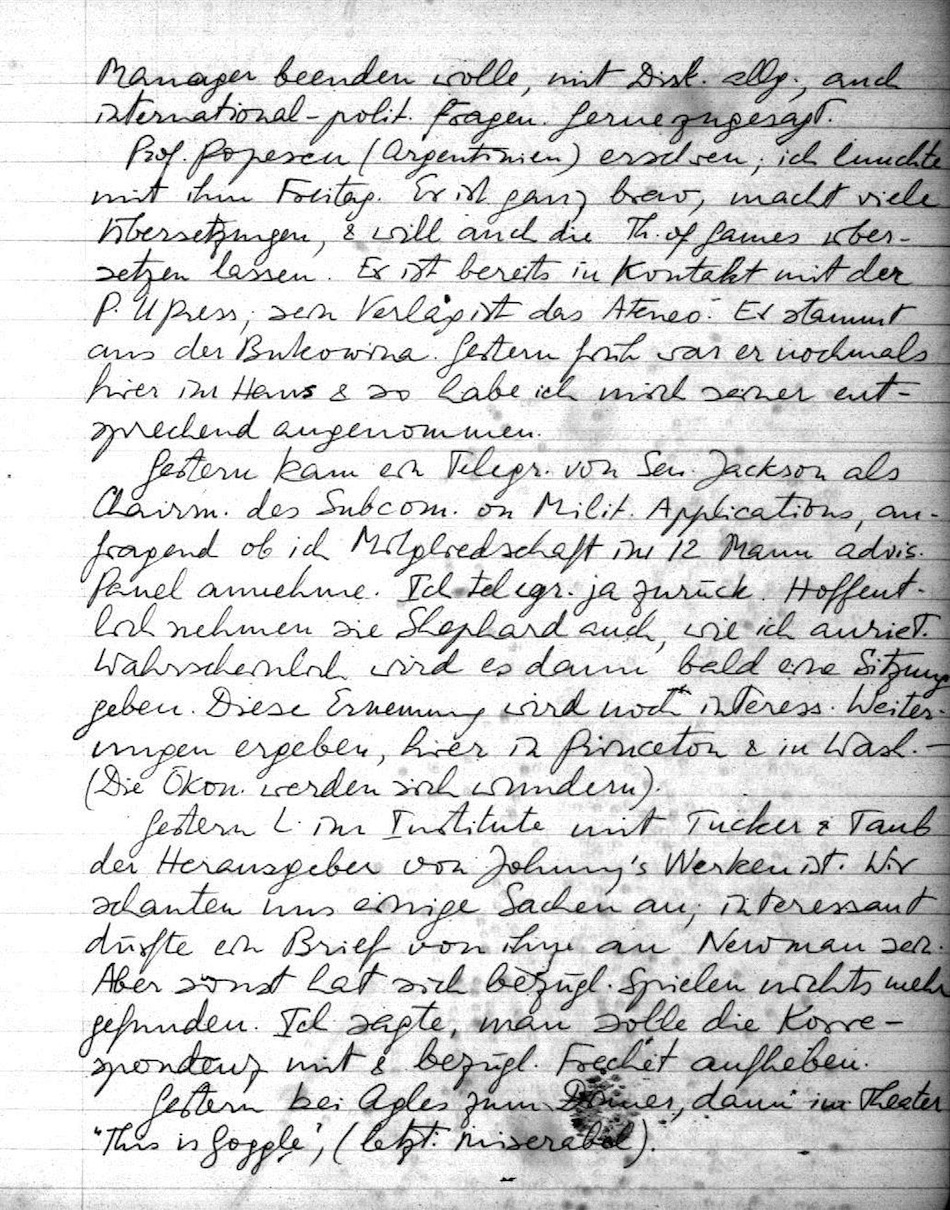 Manager beenden wolle, mit Disk. allg., auch
international-polit. Fragen. Gerne zugesagt.
Prof. Popescu (Argentinien) erschien; ich lunchte
mit ihm Freitag. Er ist ganz brav, macht viele
Übersetzungen, & will auch die Th. of Games über-
setzen lassen. Er ist bereits in Kontakt mit der
P. U Press; sein Verlag ist das Ateneo. Er stammt
aus der Bukowina. Gestern früh war er nochmals
hier im Haus & so habe ich mich seiner ent-
sprechend angenommen.
Gestern kam ein Telegr. von Sen. Jackson als
Chairm. des Subcom. on Milit. Applications, an-
fragend ob ich Mitgliedschaft im 12 Mann advis.
Panel annehme. Ich telegr. ja zurück. Hoffent-
lich nehmen sie Shephard auch, wie ich anriet.
Wahrscheinlich wird es dann bald eine Sitzung
geben. Diese Ernennung wird noch interess. Weiter-
ungen ergeben, hier in Princeton & in Wash. –
(Die Ökon. werden sich wundern).
Gestern L. im Institute mit Tucker & Taub
der Herausgeber von Johnny's Werken ist. Wir
schauten uns einige Sachen an; interessant
dürfte ein Brief von ihm an Newman sein.
Aber sonst hat sich bezügl. Spielen nichts mehr
gefunden. Ich sagte, man solle die Korre-
spondenz mit & bezügl. Frechét aufheben.
Gestern bei Agles zum Dinner, dann im Theater
"This is Goggle", (letzt. miserabel).